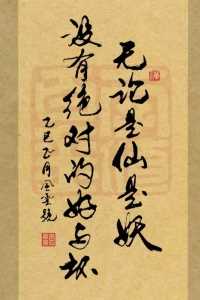 无论是仙是妖
没有绝对的好与坏
乙巳正月风云号